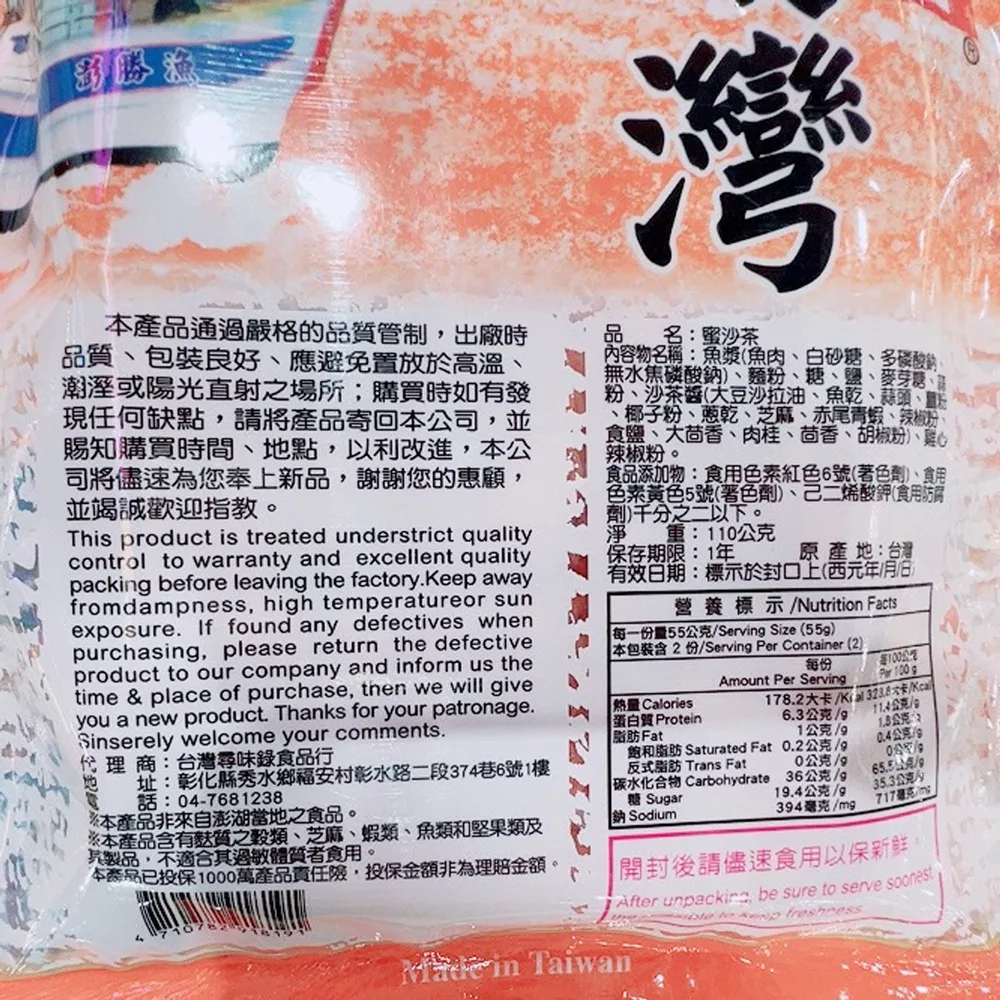 澎勝漁
灣
®
本產品通過嚴格的品質管制，出廠時
品質、包裝良好、應避免置放於高溫、
潮溼或陽光直射之場所；購買時如有發
現任何缺點，請將產品寄回本公司，並
賜知購買時間、地點，以利改進，本公
司將儘速為您奉上新品，謝謝您的惠顧，
並竭誠歡迎指教。
This product is treated understrict quality
control to warranty and excellent quality
packing before leaving the factory.Keep away
fromdampness, high temperatureor sun
exposure. If found any defectives when
purchasing, please return the defective
product to our company and inform us the
time & place of purchase, then we will give
you a new product. Thanks for your patronage.
Sinserely welcome your comments.
代理商：台灣尋味錄食品行
址：彰化縣秀水鄉福安村彰水路二段374巷6號1樓
話：04-7681238
※本產品非來自澎湖當地之食品。
※本產品含有麩質之穀類、芝麻、蝦類、魚類和堅果類及
其製品，不適合其過敏體質者食用。
本產品已投保1000萬產品責任險，投保金額非為理賠金額。
品　　名：蜜沙茶
內容物名稱：魚漿(魚肉、白砂糖、多磷酸鈉、
無水焦磷酸鈉)、麵粉、糖、鹽、麥芽糖、蒜
粉、沙茶醬(大豆沙拉油、魚乾、蒜頭、薑粉
、椰子粉、蔥乾、芝麻、赤尾青蝦、辣椒粉、
食鹽、大茴香、肉桂、茴香、胡椒粉)、雞心
辣椒粉。
食品添加物：食用色素紅色6號(著色劑)、食用
色素黃色5號(著色劑)、己二烯酸鉀(食用防腐
劑)千分之二以下。
淨　　重：110公克
保存期限：1年　　原產地：台灣
有效日期：標示於封口上(西元年/月/日)
營養標示/Nutrition Facts
每一份量55公克/Serving Size (55g)
本包裝含 2 份/Serving Per Container (2)
每份 每100公克
Amount Per Serving Per 100 g
熱量Calories 178.2大卡/Kcal 323.8大卡/Kcal
蛋白質Protein 6.3公克/g 11.4公克/g
脂肪Fat 1公克/g 1.8公克/g
飽和脂肪 Saturated Fat 0.2公克/g 0.4公克/g
反式脂肪 Trans Fat 0公克/g 0公克/g
碳水化合物 Carbohydrate 36公克/g 65.5公克/g
糖 Sugar 19.4公克/g 35.3公克/g
鈉Sodium 394毫克/mg 717毫克/mg
開封後請儘速食用以保新鮮。
After unpacking, be sure to serve soonest
to keep freshness
Made in Taiwan